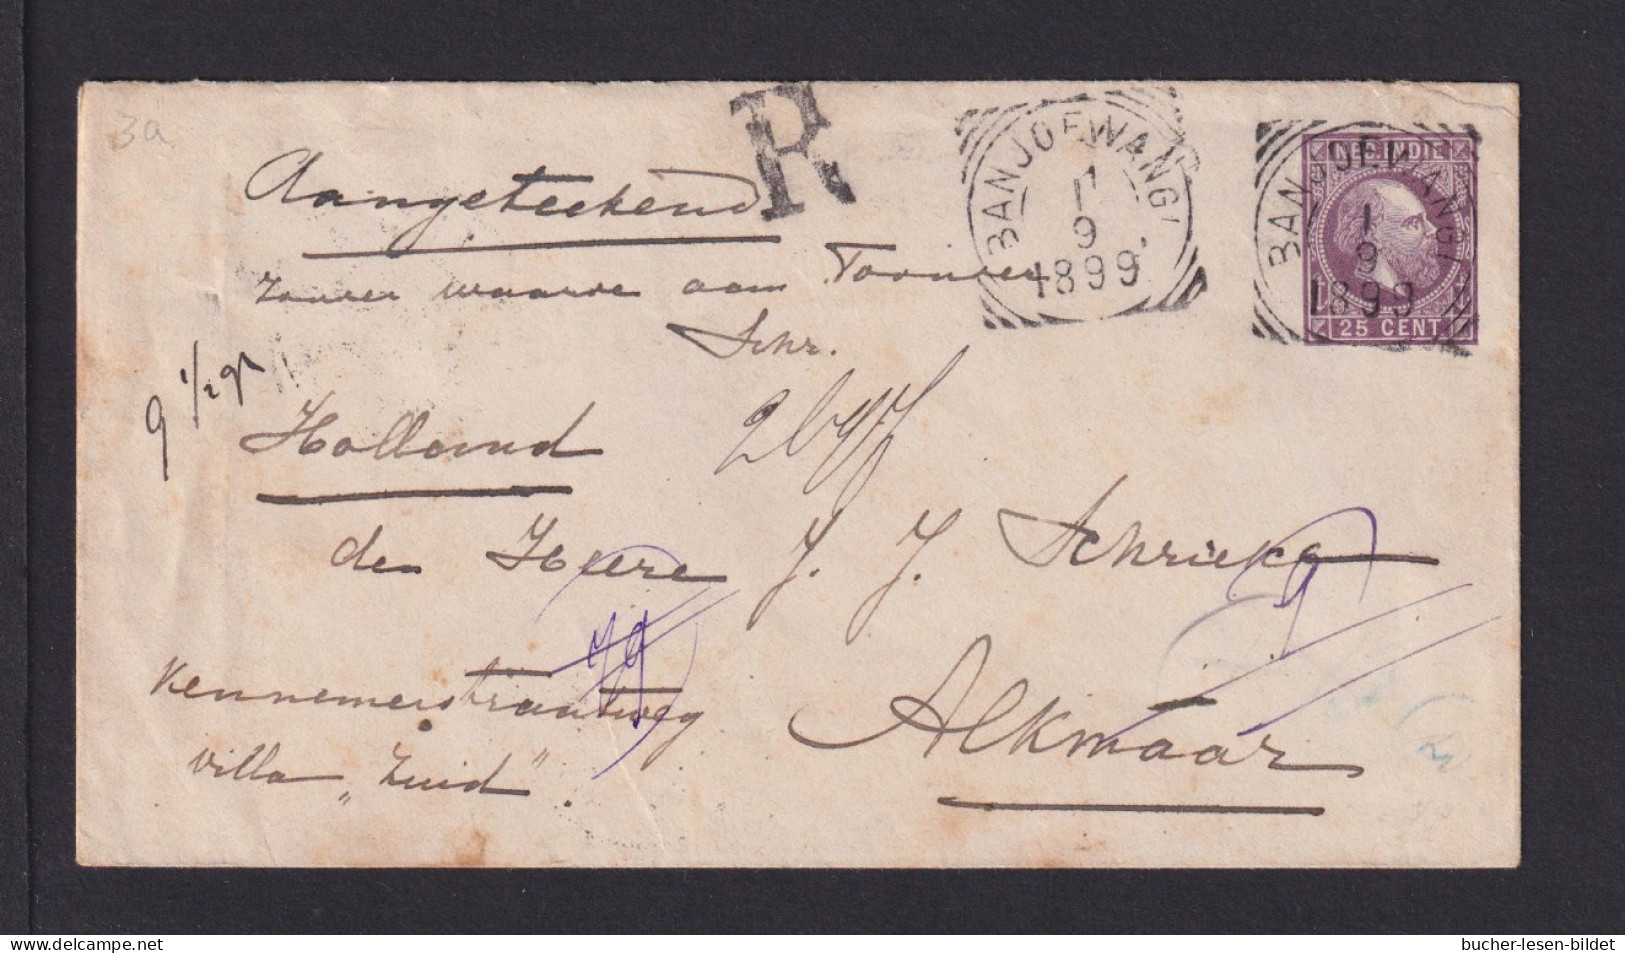 3a
R
BANJOEWANGI
1
9
1899
BANJOEWANGI
1
9
1899
NED. INDIE
25 CENT
Aangeteekend
waarde aan
Schr.
9 1/2 gr
Holland
den Heere J. J. Schrieke
79
9
Kennemerstraatweg
Alkmaar
villa „Zuid".
© www.delcampe.net
bucher-lesen-bildet